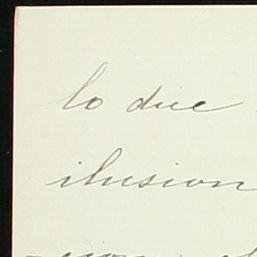 lo dice
ilusion